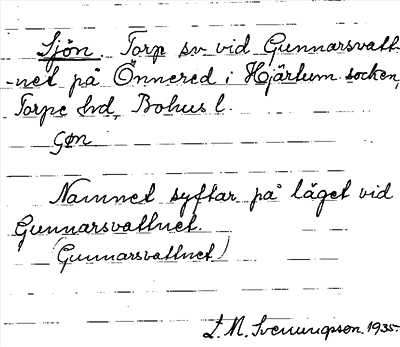 Sjön. Torp sv vid Gunnarsvatt-
-net på Önnered i Hjärtum socken,
Torpe hd, Bohus l.
Namnet syftar på läget vid
Gunnarsvattnet.
(Gunnarsvattnet)
L. M. Svenungsson. 1935-